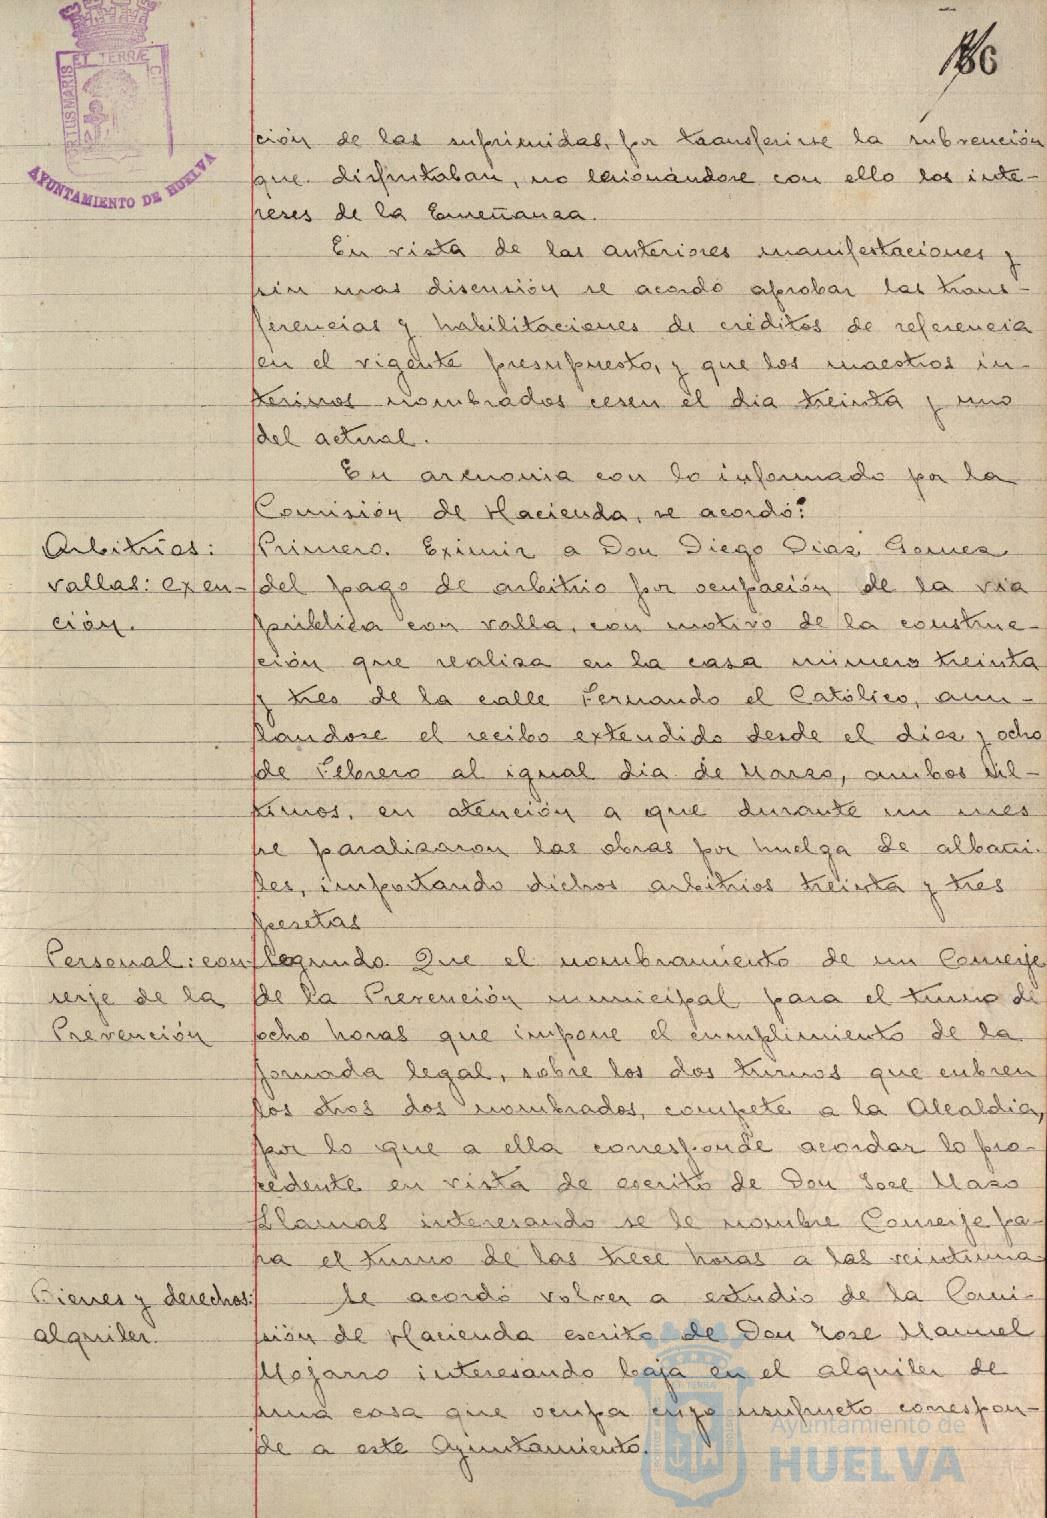 86
PORTUS MARIS ET TERRÆ CUSTODIA
AYUNTAMIENTO DE HUELVA
ción de las suprimidas, por transferirse la subvención
que disfrutaban, no lesionándose con ello los inte-
reses de la Enseñanza.
En vista de las anteriores manifestaciones y
sin mas discusión se acordó aprobar las trans-
ferencias y habilitaciones de créditos de referencia
en el vigente presupuesto, y que los maestros in-
terinos nombrados cesen el dia treinta y uno
del actual.
En armonia con lo informado por la
Comisión de Hacienda, se acordó:
Arbitrios:
vallas: exen-
ción.
Primero. Eximir a Don Diego Diaz Gomez
del pago de arbitrio por ocupación de la via
pública con valla, con motivo de la construc-
ción que realiza en la casa número treinta
y tres de la calle Fernando el Católico, anu-
landose el recibo extendido desde el diez y ocho
de Febrero al igual dia de Marzo, ambos úl-
timos, en atención a que durante un mes
se paralizaron las obras por huelga de albañi-
les, importando dichos arbitrios treinta y tres
pesetas
Personal: con-
serje de la
Prevención
Segundo. Que el nombramiento de un Conserje
de la Prevención municipal para el turno de
ocho horas que impone el cumplimiento de la
jornada legal, sobre los dos turnos que cubren
los otros dos nombrados, compete a la Alcaldia,
por lo que a ella corresponde acordar lo pro-
cedente en vista de escrito de Don Jose Mazo
Llamas interesando se le nombre Conserje pa-
ra el turno de las trece horas a las veintiuna
Bienes y derechos:
alquiler.
Se acordó volver a estudio de la Comi-
sión de Hacienda escrito de Don Jose Manuel
Mojarro interesando baja en el alquiler de
una casa que ocupa cuyo usufructo correspon-
de a este Ayuntamiento.
Ayuntamiento de
HUELVA